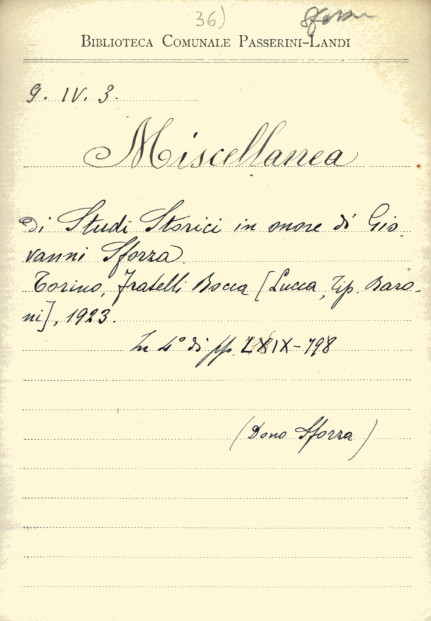 36)
Sforza
BIBLIOTECA COMUNALE PASSERINI-LANDI
9. IV. 3.
Miscellanea
di Studi Storici in onore di Gio-
vanni Sforza.
Torino, Fratelli Bocca [Lucca, Tip. Baro-
ni], 1923.
In 4° di pp. LXIX-798
(Dono Sforza)